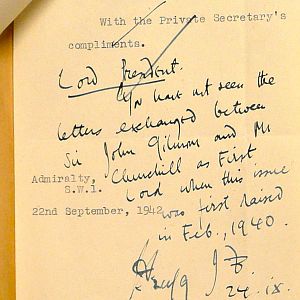 With the Private Secretary's
compliments.
Lord President.
You have not seen the
letters exchanged between
Sir John Gilmour and Mr
Churchill as First
Admiralty,
S.W.1.
Lord when this issue
22nd September, 1942.
was first raised
in Feb., 1940.
24.ix.